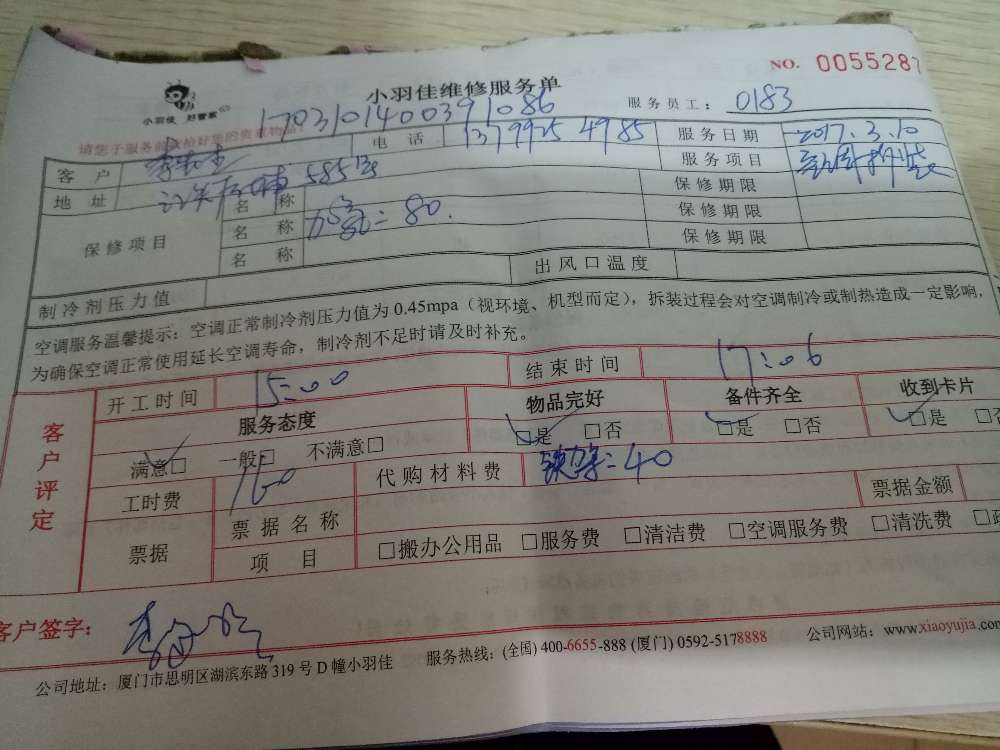 小羽佳维修服务单 NO. 0055287
小羽佳 好管家
1703101400391086 服务员工: 0183
请您于服务前收拾好您的贵重物品!
客户 电话 13799254985 服务日期 2017.3.10
地址 585号 服务项目 空调拆装
保修项目 名称 保修期限
名称 加氟=80. 保修期限
名称 保修期限
制冷剂压力值 出风口温度
空调服务温馨提示: 空调正常制冷剂压力值为0.45mpa(视环境、机型而定), 拆装过程会对空调制冷或制热造成一定影响,
为确保空调正常使用延长空调寿命, 制冷剂不足时请及时补充。
客户评定
开工时间 15:00 结束时间 17:06
服务态度 物品完好 备件齐全 收到卡片
满意□ 一般□ 不满意□ □是 □否 □是 □否 □是 □否
工时费 160 代购材料费 铁架=40
票据 票据名称 票据金额
项目 □搬办公用品 □服务费 □清洁费 □空调服务费 □清洗费
客户签字:
公司地址: 厦门市思明区湖滨东路319号D幢小羽佳 服务热线: (全国) 400-6655-888 (厦门) 0592-5178888 公司网站: www.xiaoyujia.com